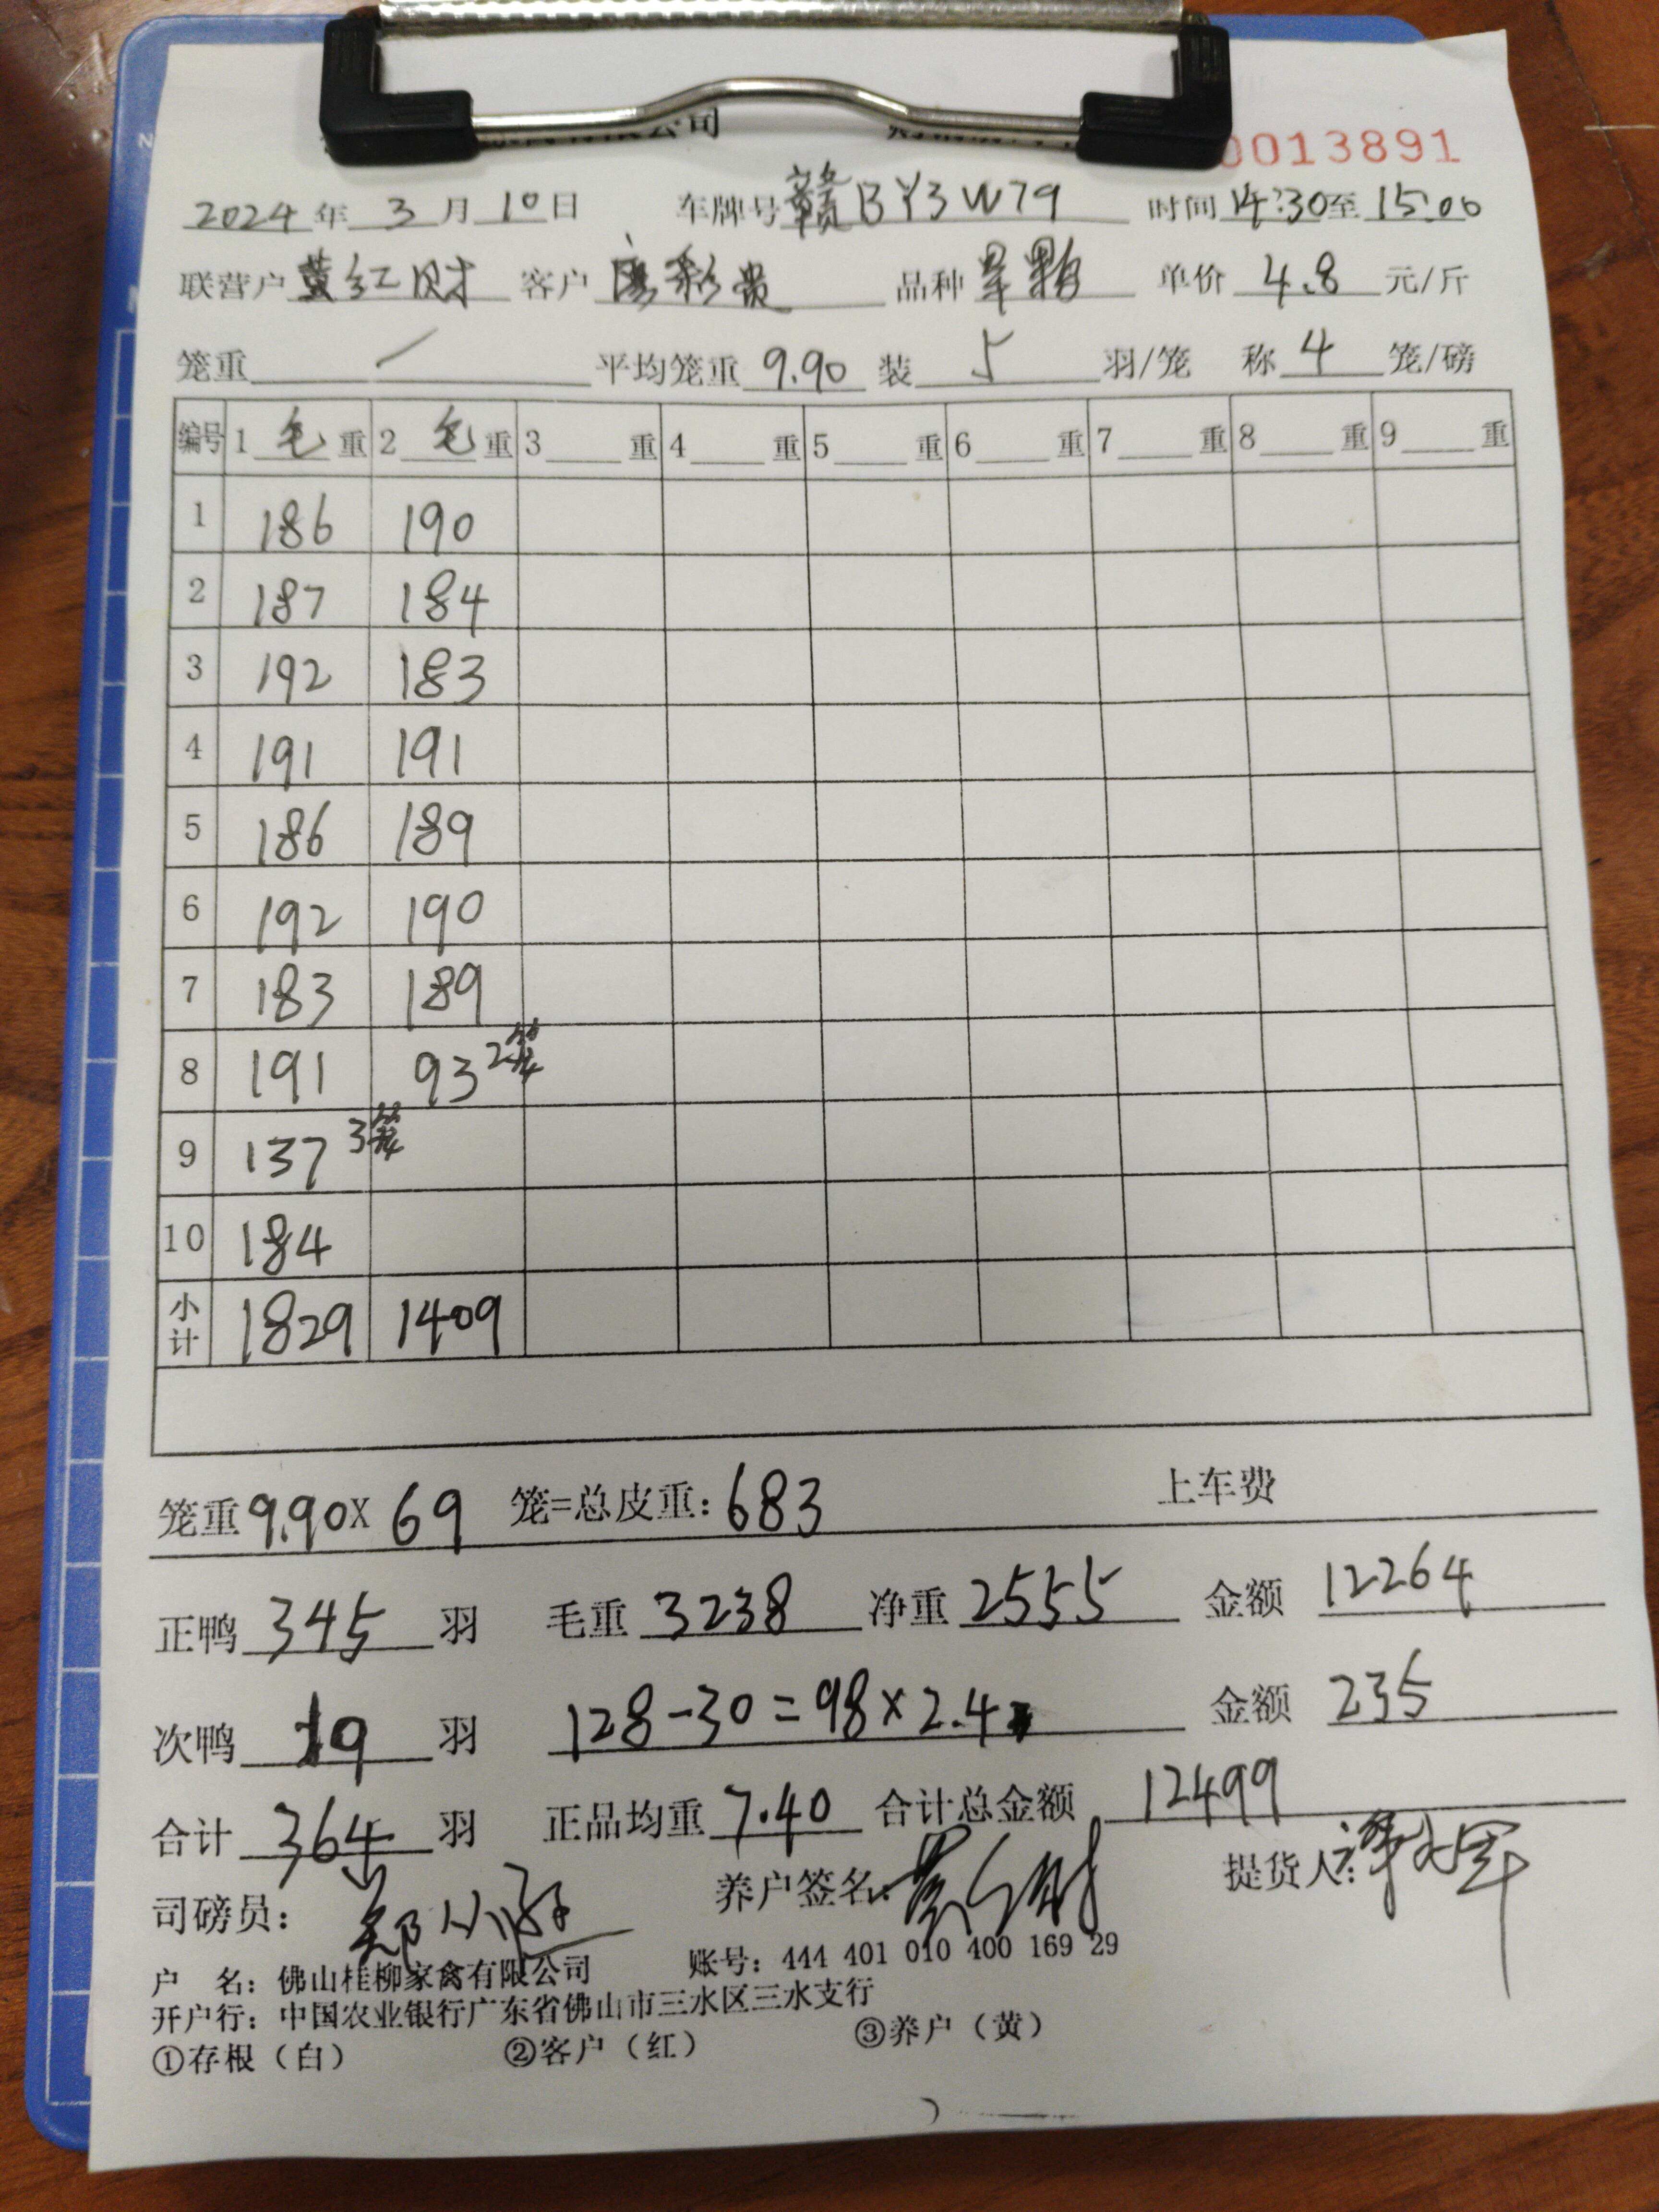 限公司 0013891
2024年 3月 10日 车牌号 赣BY3W79 时间 14:30至 15:00
联营户 黄红财 客户 廖彩贵 品种 单价 4.8 元/斤
笼重 / 平均笼重 9.90 装 5 羽/笼 称 4 笼/磅
编号 1 毛 重 2 毛 重 3 重 4 重 5 重 6 重 7 重 8 重 9 重
1 186 190
2 187 184
3 192 183
4 191 191
5 186 189
6 192 190
7 183 189
8 191 93 2笼
9 137 3笼
10 184
小计 1829 1409
笼重 9.90X 69 笼=总皮重: 683 上车费
正鸭 345 羽 毛重 3238 净重 2555 金额 12264
次鸭 19 羽 128-30=98×2.4 金额 235
合计 364 羽 正品均重 7.40 合计总金额 12499
司磅员: 养户签名: 提货人:
户 名: 佛山桂柳家禽有限公司 账号: 444 401 010 400 169 29
开户行: 中国农业银行广东省佛山市三水区三水支行
①存根(白) ②客户(红) ③养户(黄)